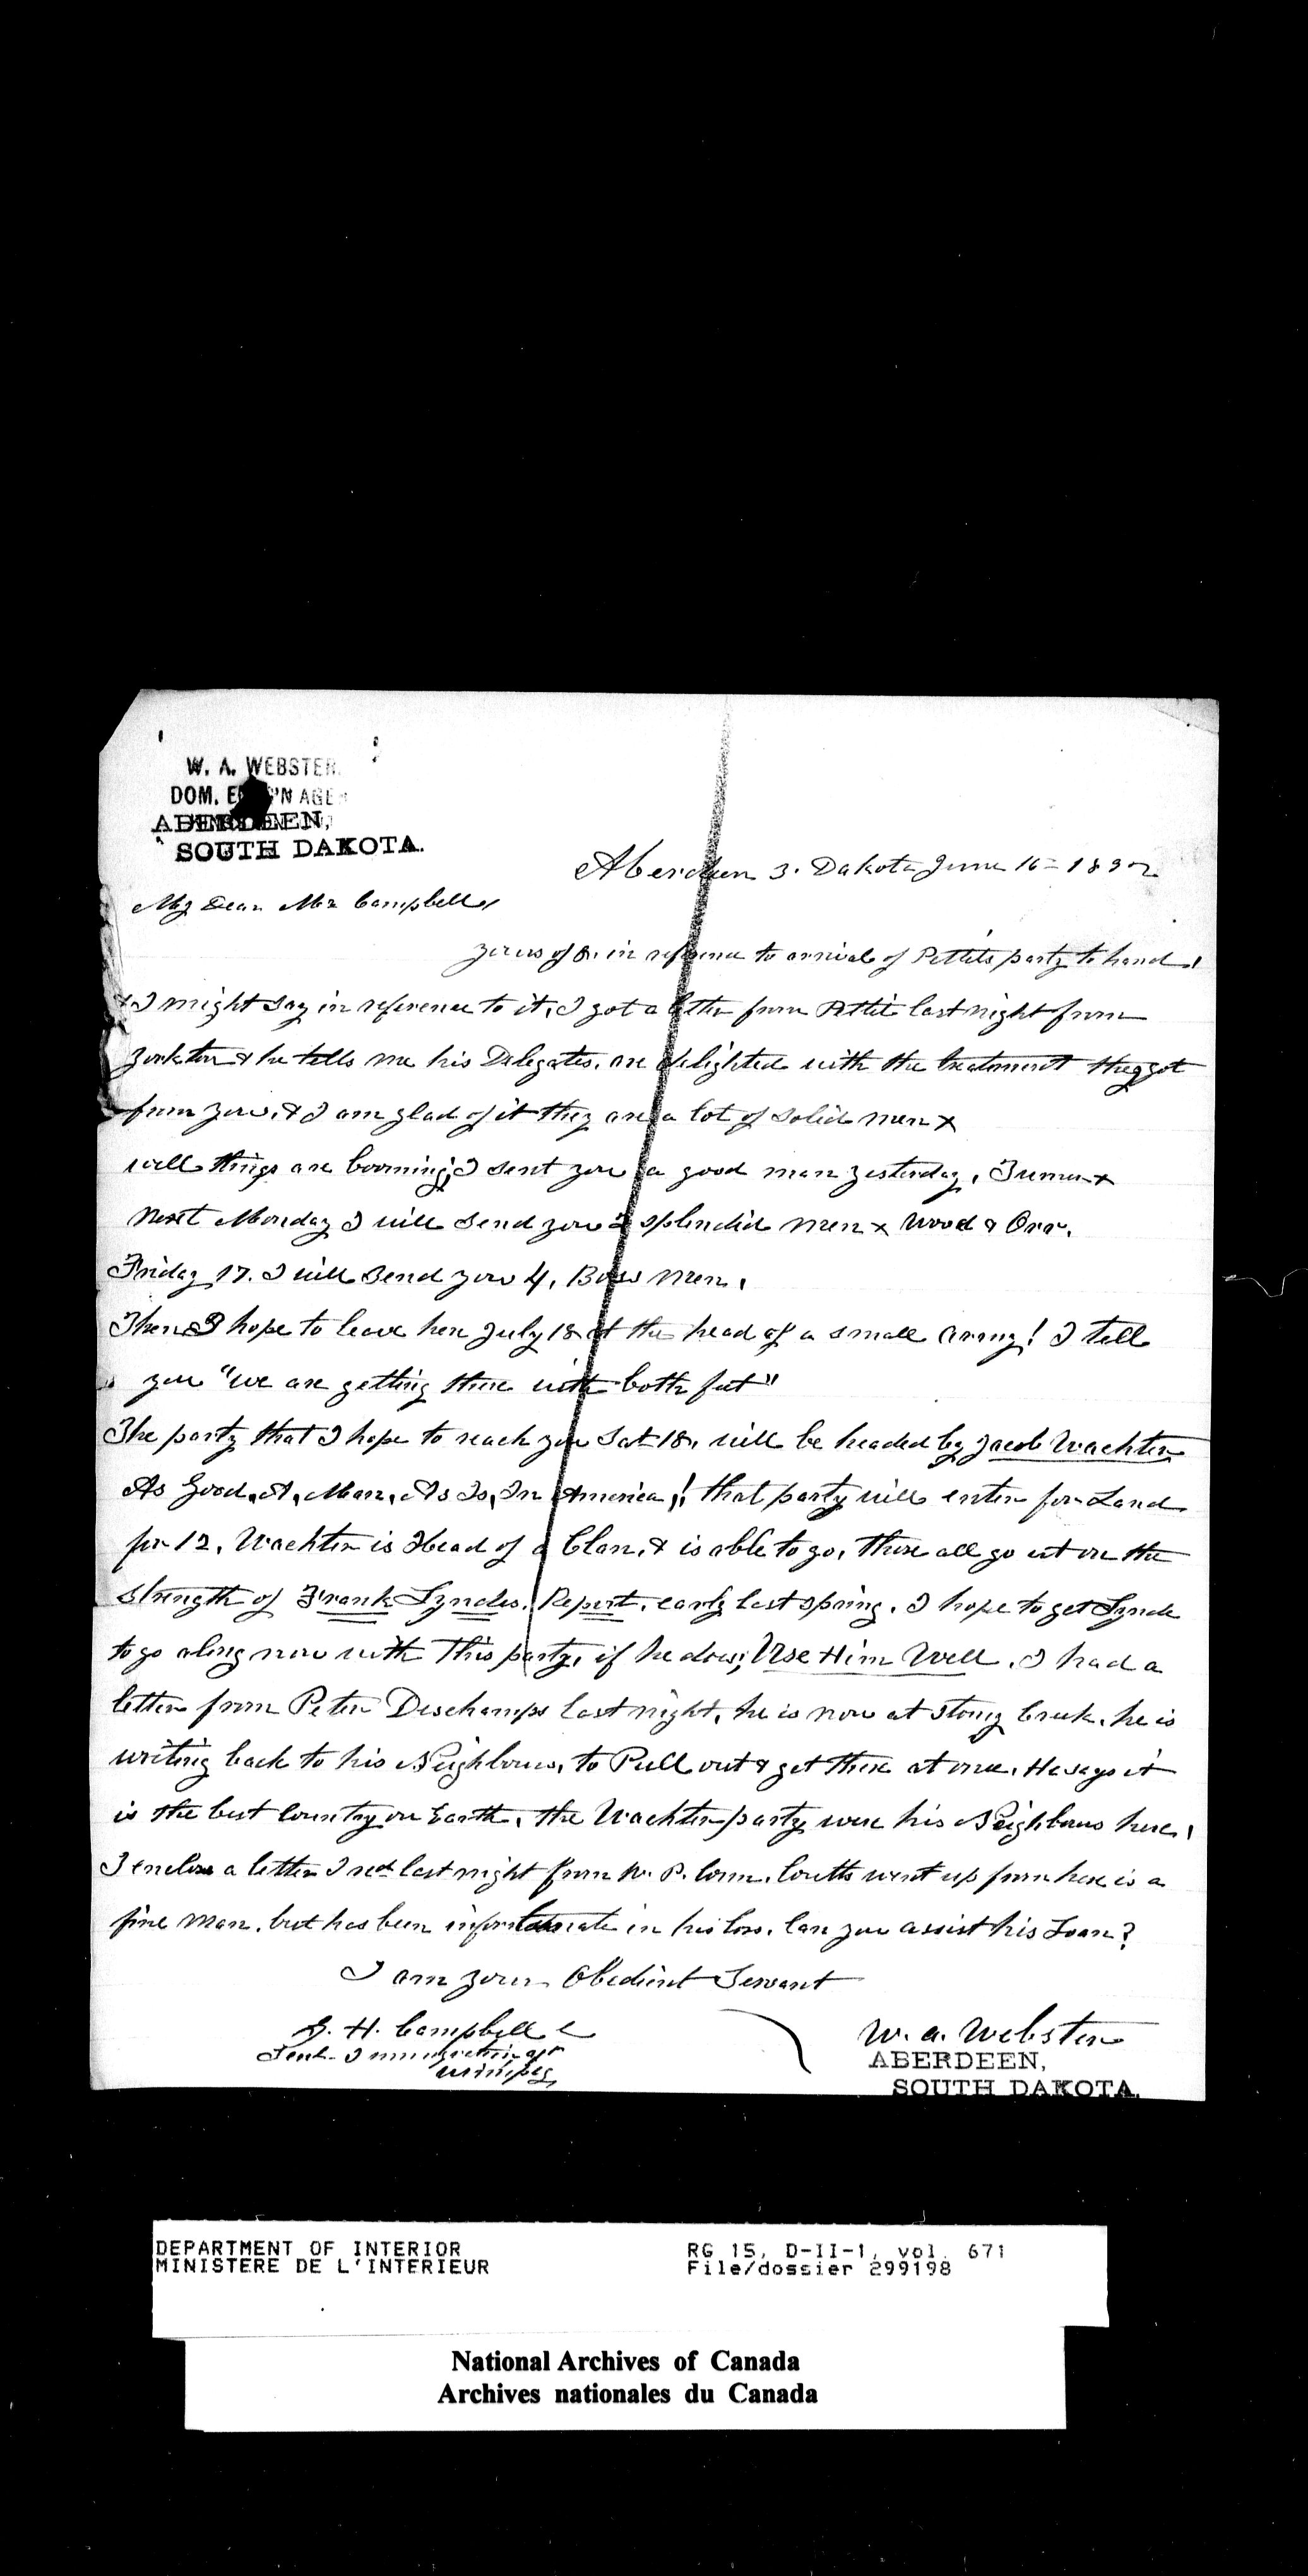 W. A. WEBSTER.
DOM. E 'N AGE
ABERDEEN,
SOUTH DAKOTA.
Aberdeen S. Dakota June 16 = 1892
My Dear Mr Campbell,
yours of 8. in reference to arrival of Pettits party to hand,
& I might say in reference to it, I got a letter from Pettit last night from
Yankton & he tells me his Delegates. are delighted with the treatment they got
from you. & I am glad of it they are a lot of solid men x
well things are booming; I sent you a good man yesterday,
next Monday I will send you 2 splendid men x Wood & Orr.
Friday 17. I will send you 4, Boss men.
Then I hope to leave here July 18 at the head of a small army! I tell
you "we are getting there with both feet"
The party that I hope to reach you Sat 18. will be headed by Jacob Wachter
As Good, A, Man, As Is, In America,! that party will enter for Land
for 12, Wachter is Head of a Clan, & is able to go, these all go out on the
strength of Frank Lyndes. Report. early last spring. I hope to get Lynde
to go along now with this party, if he does; Use Him Well. I had a
letter from Peter Deschamps last night, he is now at Stony Creek. he is
writing back to his Neighbours, to Pull out & get there at once. He says it
is the best Country on Earth. the Wachter party were his Neighbours here,
I enclose a letter I recd last night from W. P. Coutts went up from here is a
fine man. but has been in his loss. Can you assist his Loan?
I am your Obedient Servant
W. A. Webster
ABERDEEN,
SOUTH DAKOTA.
H. Campbell
Immigration agt
Winnipeg
DEPARTMENT OF INTERIOR
MINISTERE DE L'INTERIEUR
RG 15, D-II-1, vol. 671
File/dossier 299198
National Archives of Canada
Archives nationales du Canada